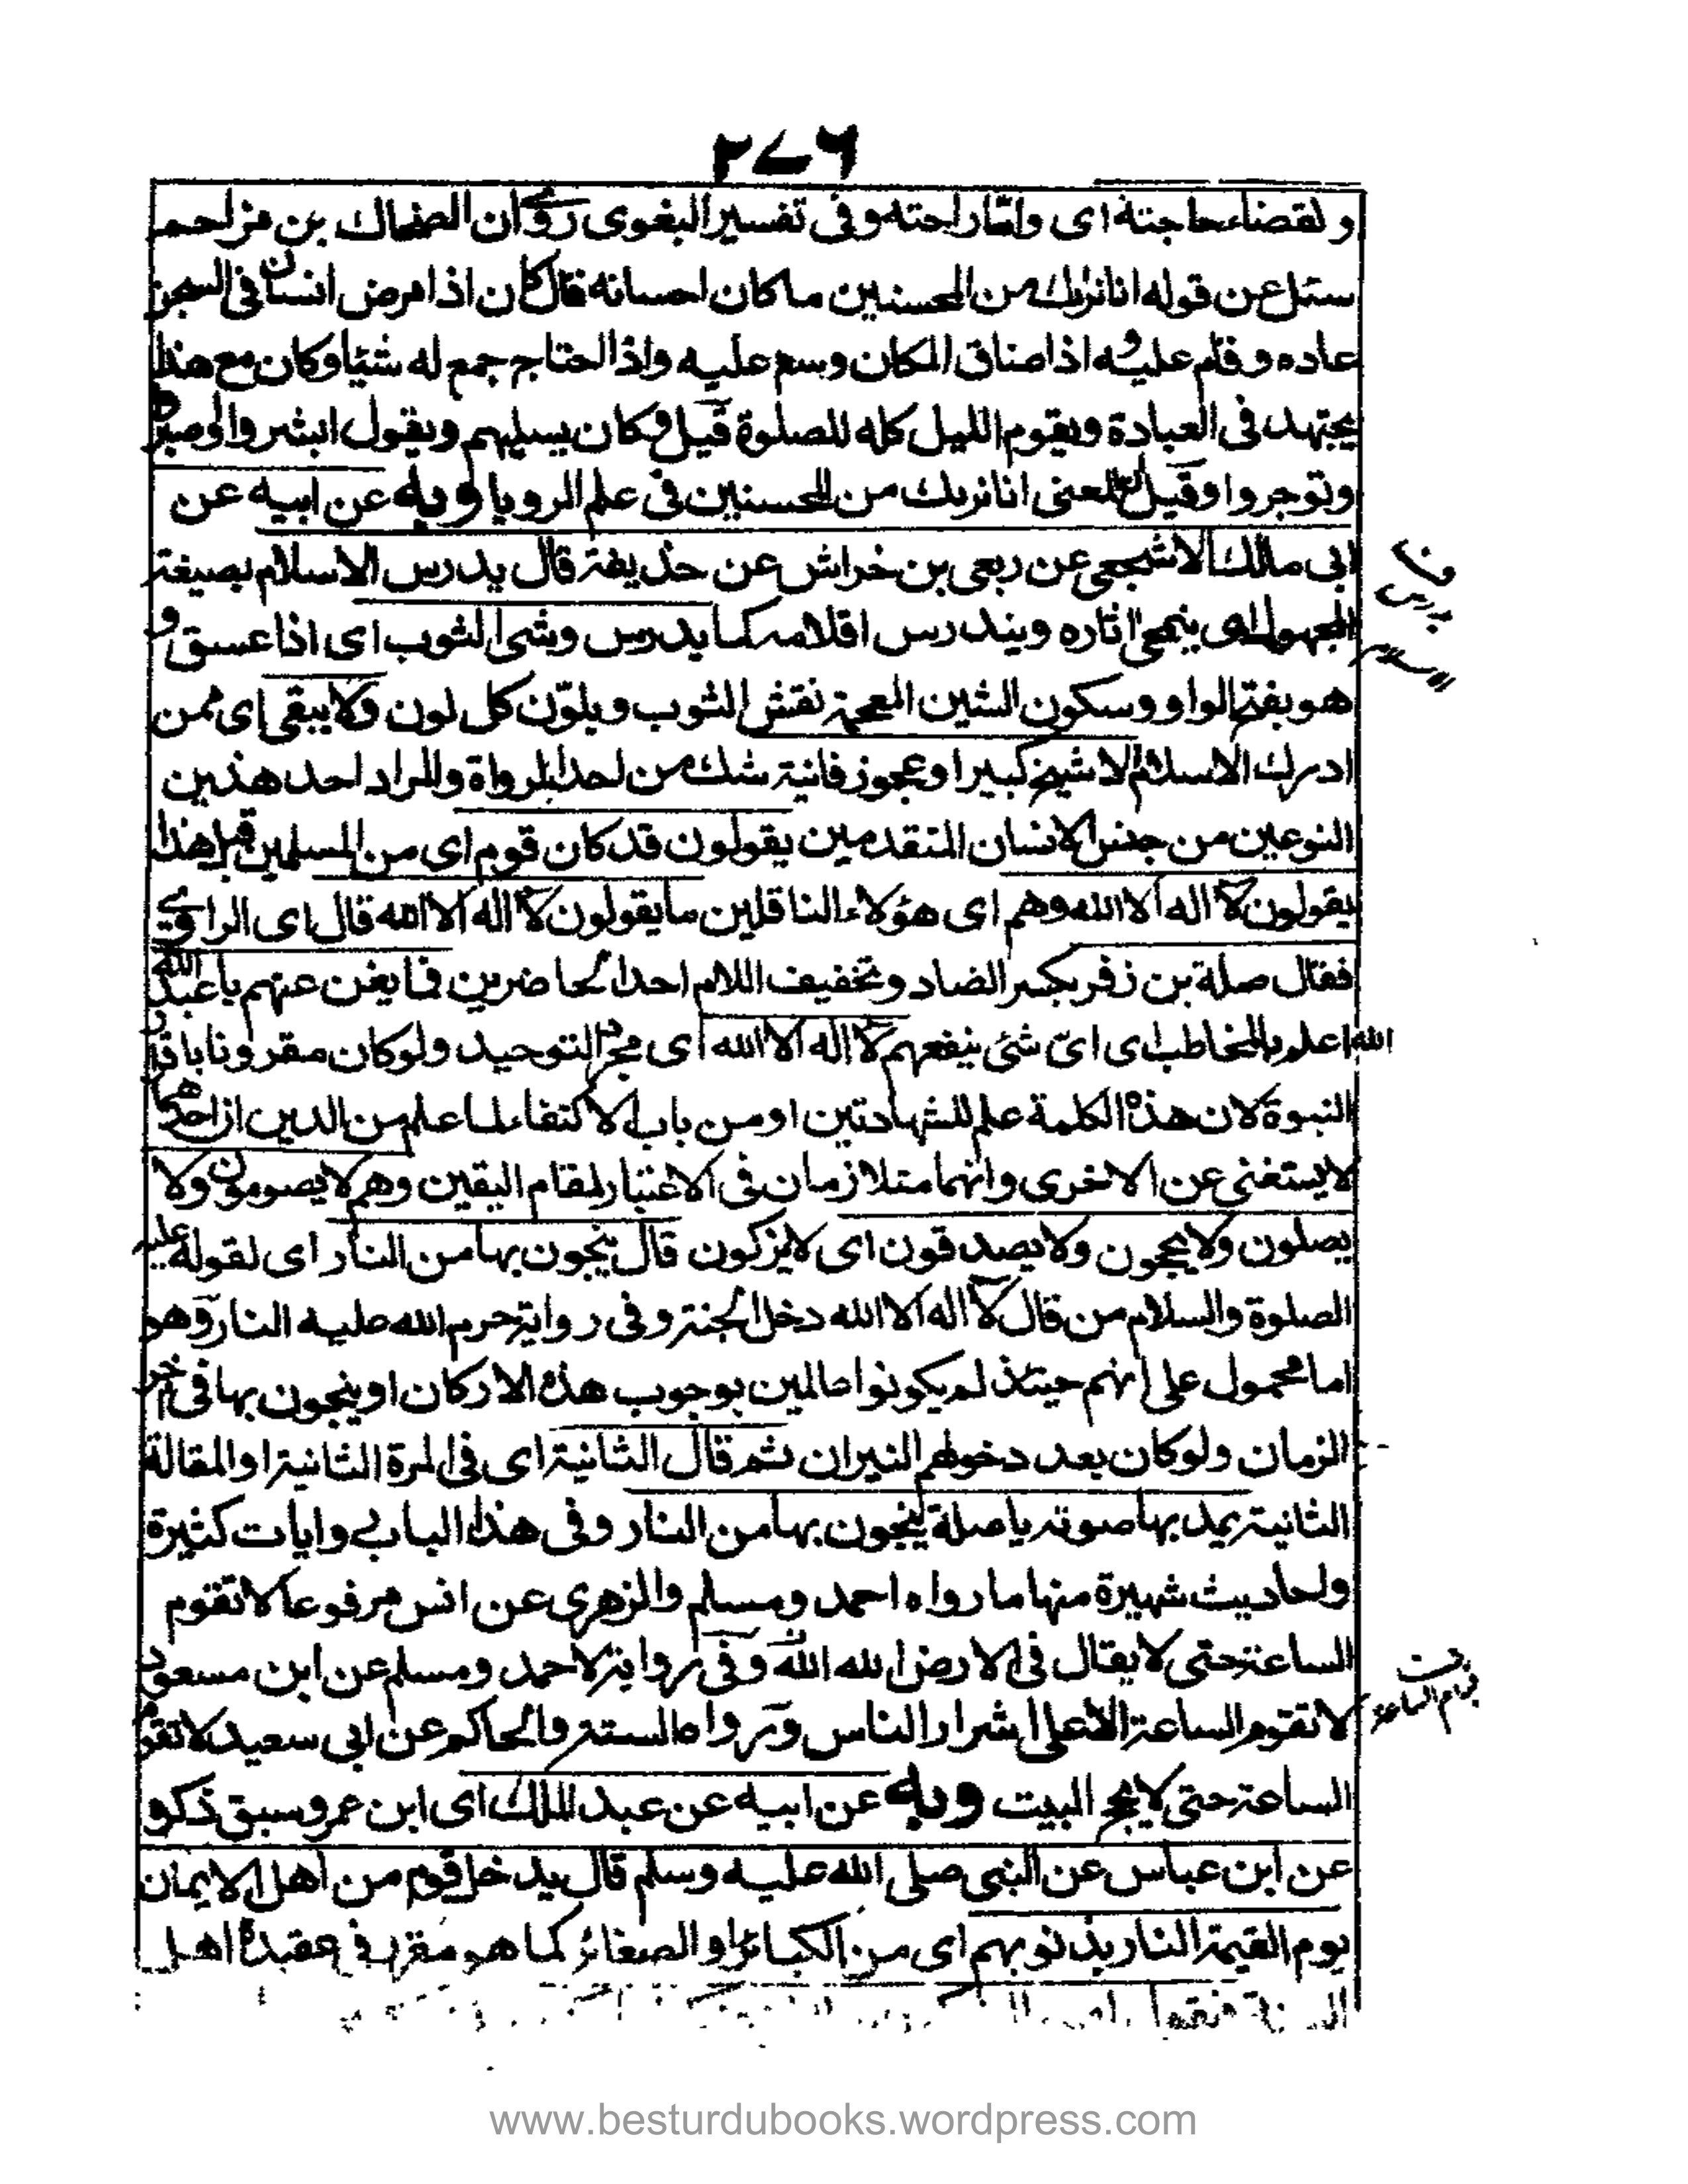 ٢٧٦
ولقضاء حاجته اى واتمار احته وفى تفسير البغوى روى ان الضحاك بن مزاحم
سئل عن قوله انا نراك من المحسنين ما كان احسانه قال كان اذا مرض انسان فى السجن
عاده وقام عليه و اذا ضاق المكان وسع عليه واذا احتاج جمع له شيئا وكان مع هذا
يجتهد فى العبادة ويقوم الليل كله للصلوة قيل وكان يسليهم ويقول ابشروا واصبروا
وتوجروا وقيل المعنى انا نراك من المحسنين فى علم الرويا وبه عن ابيه عن
ابى مالك الاشجعى عن ربعى بن خراش عن حذيفة قال يدرس الاسلام بصيغة
المجهول اى ينمحى اثاره ويندرس اقلامه كما يدرس وشى الثوب اى اذا عسق و
هو بفتح الواو وسكون الشين المعجمة نقش الثوب ويلوّن كل لون ولا يبقى اى ممن
ادرك الاسلام الا شيخ كبير او عجوز فانية شك من احد الرواة والمراد احد هذين
النوعين من جنس الانسان المتقدمين يقولون قد كان قوم اى من المسلمين قبل هذا
يقولون لا اله الا الله وهم اى هؤلاء الناقلين ما يقولون لا اله الا الله قال اى الراوى
فقال صلة بن زفر بكسر الضاد وتخفيف اللام احد الحاضرين فما يغن عنهم يا عبد الله
الله اعلم بالمخاطب اى اىّ شئ ينفعهم لا اله الا الله اى مجرد التوحيد ولو كان مقرونا باقرار
النبوة لان هذه الكلمة علم للشهادتين او من باب الاكتفاء لما علم من الدين ان احدهما
لا يستغنى عن الاخرى وانهما متلازمان فى الاعتبار لمقام اليقين وهم لا يصومون ولا
يصلون ولا يحجون ولا يصدقون اى لا يزكون قال ينجون بها من النار اى لقوله عليه
الصلوة والسلام من قال لا اله الا الله دخل الجنة وفى رواية حرم الله عليه النار وهو
اما محمول على انهم حينئذ لم يكونوا عالمين بوجوب هذه الاركان او ينجون بها فى اخر
الزمان ولو كان بعد دخولهم النيران ثم قال الثانية اى فى المرة الثانية او المقالة
الثانية يمد بها صوته يا صلة ينجون بها من النار وفى هذا الباب وايات كثيرة
واحاديث شهيرة منها ما رواه احمد ومسلم والزهرى عن انس مرفوعا لا تقوم
الساعة حتى لا يقال فى الارض الله الله وفى رواية لاحمد ومسلم عن ابن مسعود
لا تقوم الساعة الا على اشرار الناس ورواه الستة والحاكم عن ابى سعيد لا تقوم
الساعة حتى لا يحج البيت وبه عن ابيه عن عبد الملك اى ابن عمرو سبق ذكره
عن ابن عباس عن النبى صلى الله عليه وسلم قال يدخل قوم من اهل الايمان
يوم القيمة النار بذنوبهم اى من الكبائر او الصغائر كما هو مقرر فى عقيدة اهل
www.besturdubooks.wordpress.com